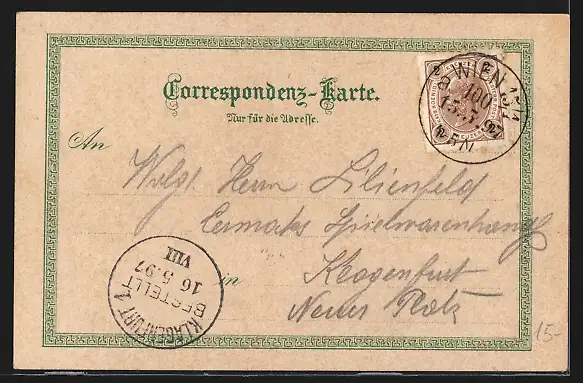 Correspondenz-Karte.
Nur für die Adresse.
An
Wolg. Herrn Lilienfeld
Spielwarenhandlg
in Klagenfurt
Neuer Platz
WIEN
100
15.5.97
KLAGENFURT 1
BESTELLT
16 5.97
VIII
15-